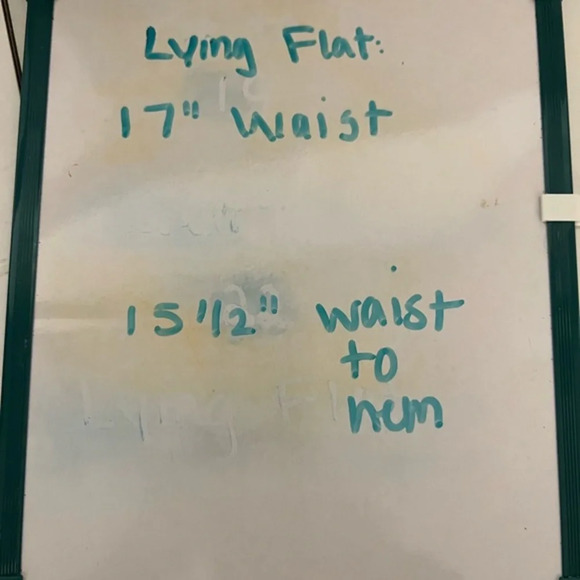 Lying Flat:
17" Waist
15 1/2" waist
to
hem